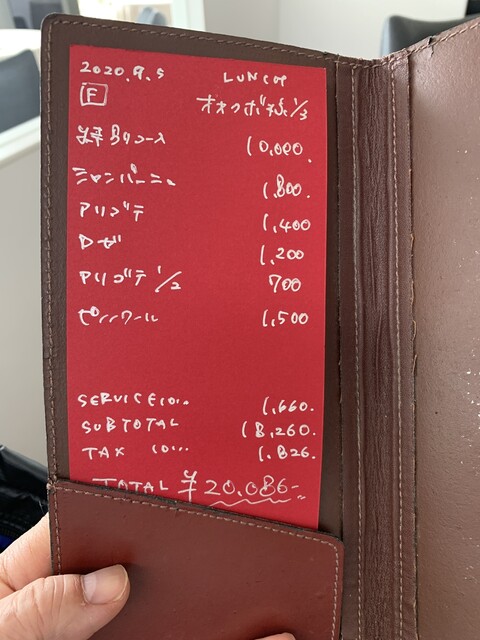 2020.9.5 LUNCH
F オオクボ様 1/3
特別コース 10,000.
シャンパーニュ 1,800.
アリゴテ 1,400
ロゼ 1,200
アリゴテ 1/2 700
ピノノワール 1,500
SERVICE 10% 1,660.
SUBTOTAL 18,260.
TAX 10% 1,826.
TOTAL ¥20,086-